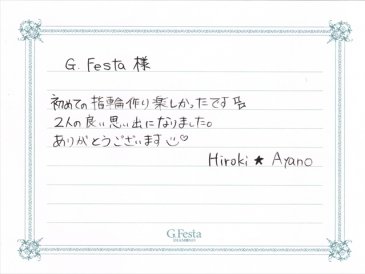 G. Festa 様
初めての指輪作り楽しかったです
2人の良い思い出になりました。
ありがとうございます
Hiroki ★ Ayano
G.Festa